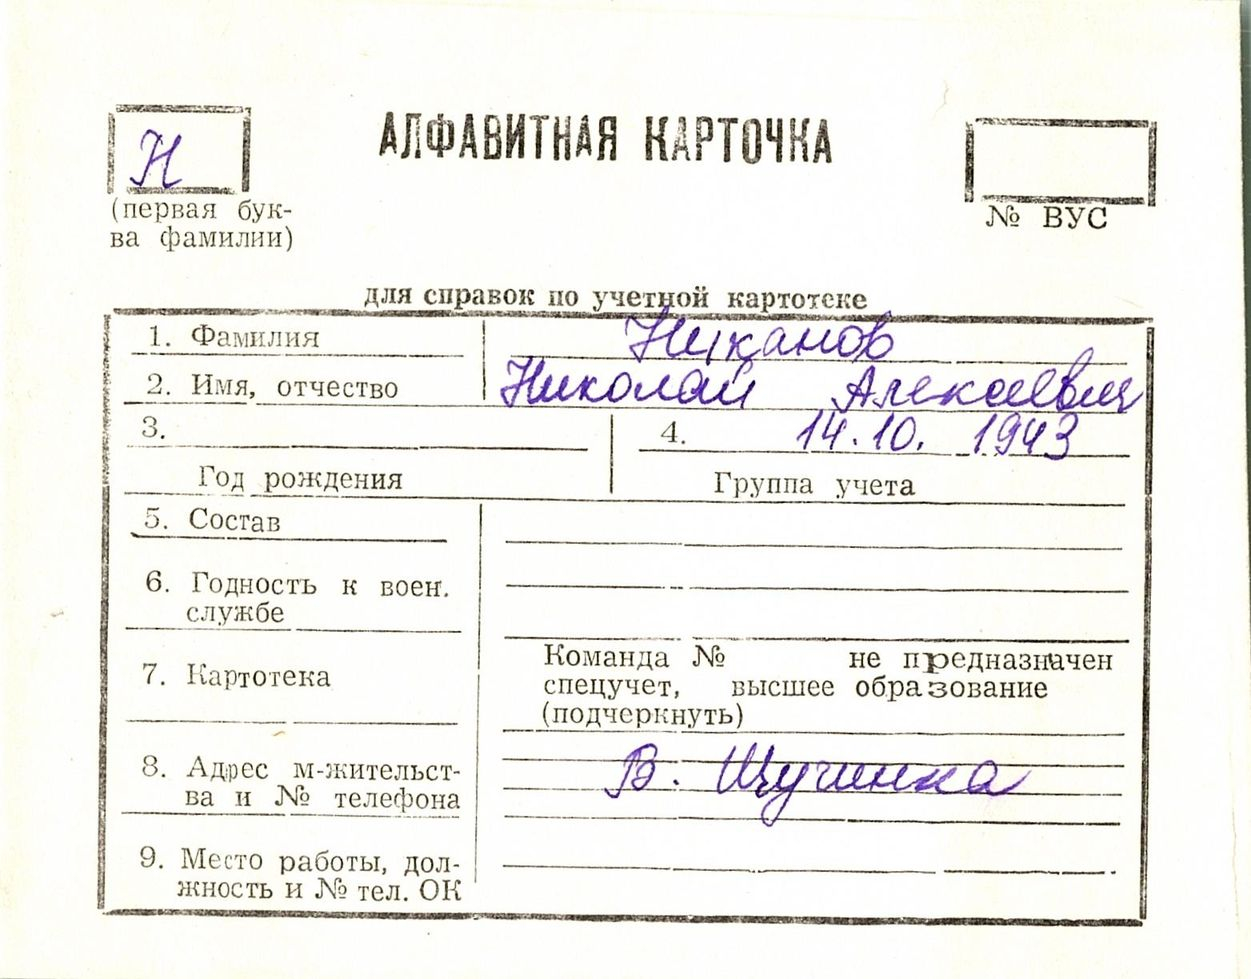 Н
АЛФАВИТНАЯ КАРТОЧКА
(первая бук-
ва фамилии)
№ ВУС
для справок по учетной картотеке
1. Фамилия Никанов
2. Имя, отчество Николай Алексеевич
3. 4. 14.10. 1943
Год рождения Группа учета
5. Состав
6. Годность к воен.
службе
7. Картотека
Команда № не предназначен
спецучет, высшее образование
(подчеркнуть)
8. Адрес м-жительст-
ва и № телефона
В. Щучинка
9. Место работы, дол-
жность и № тел. ОК